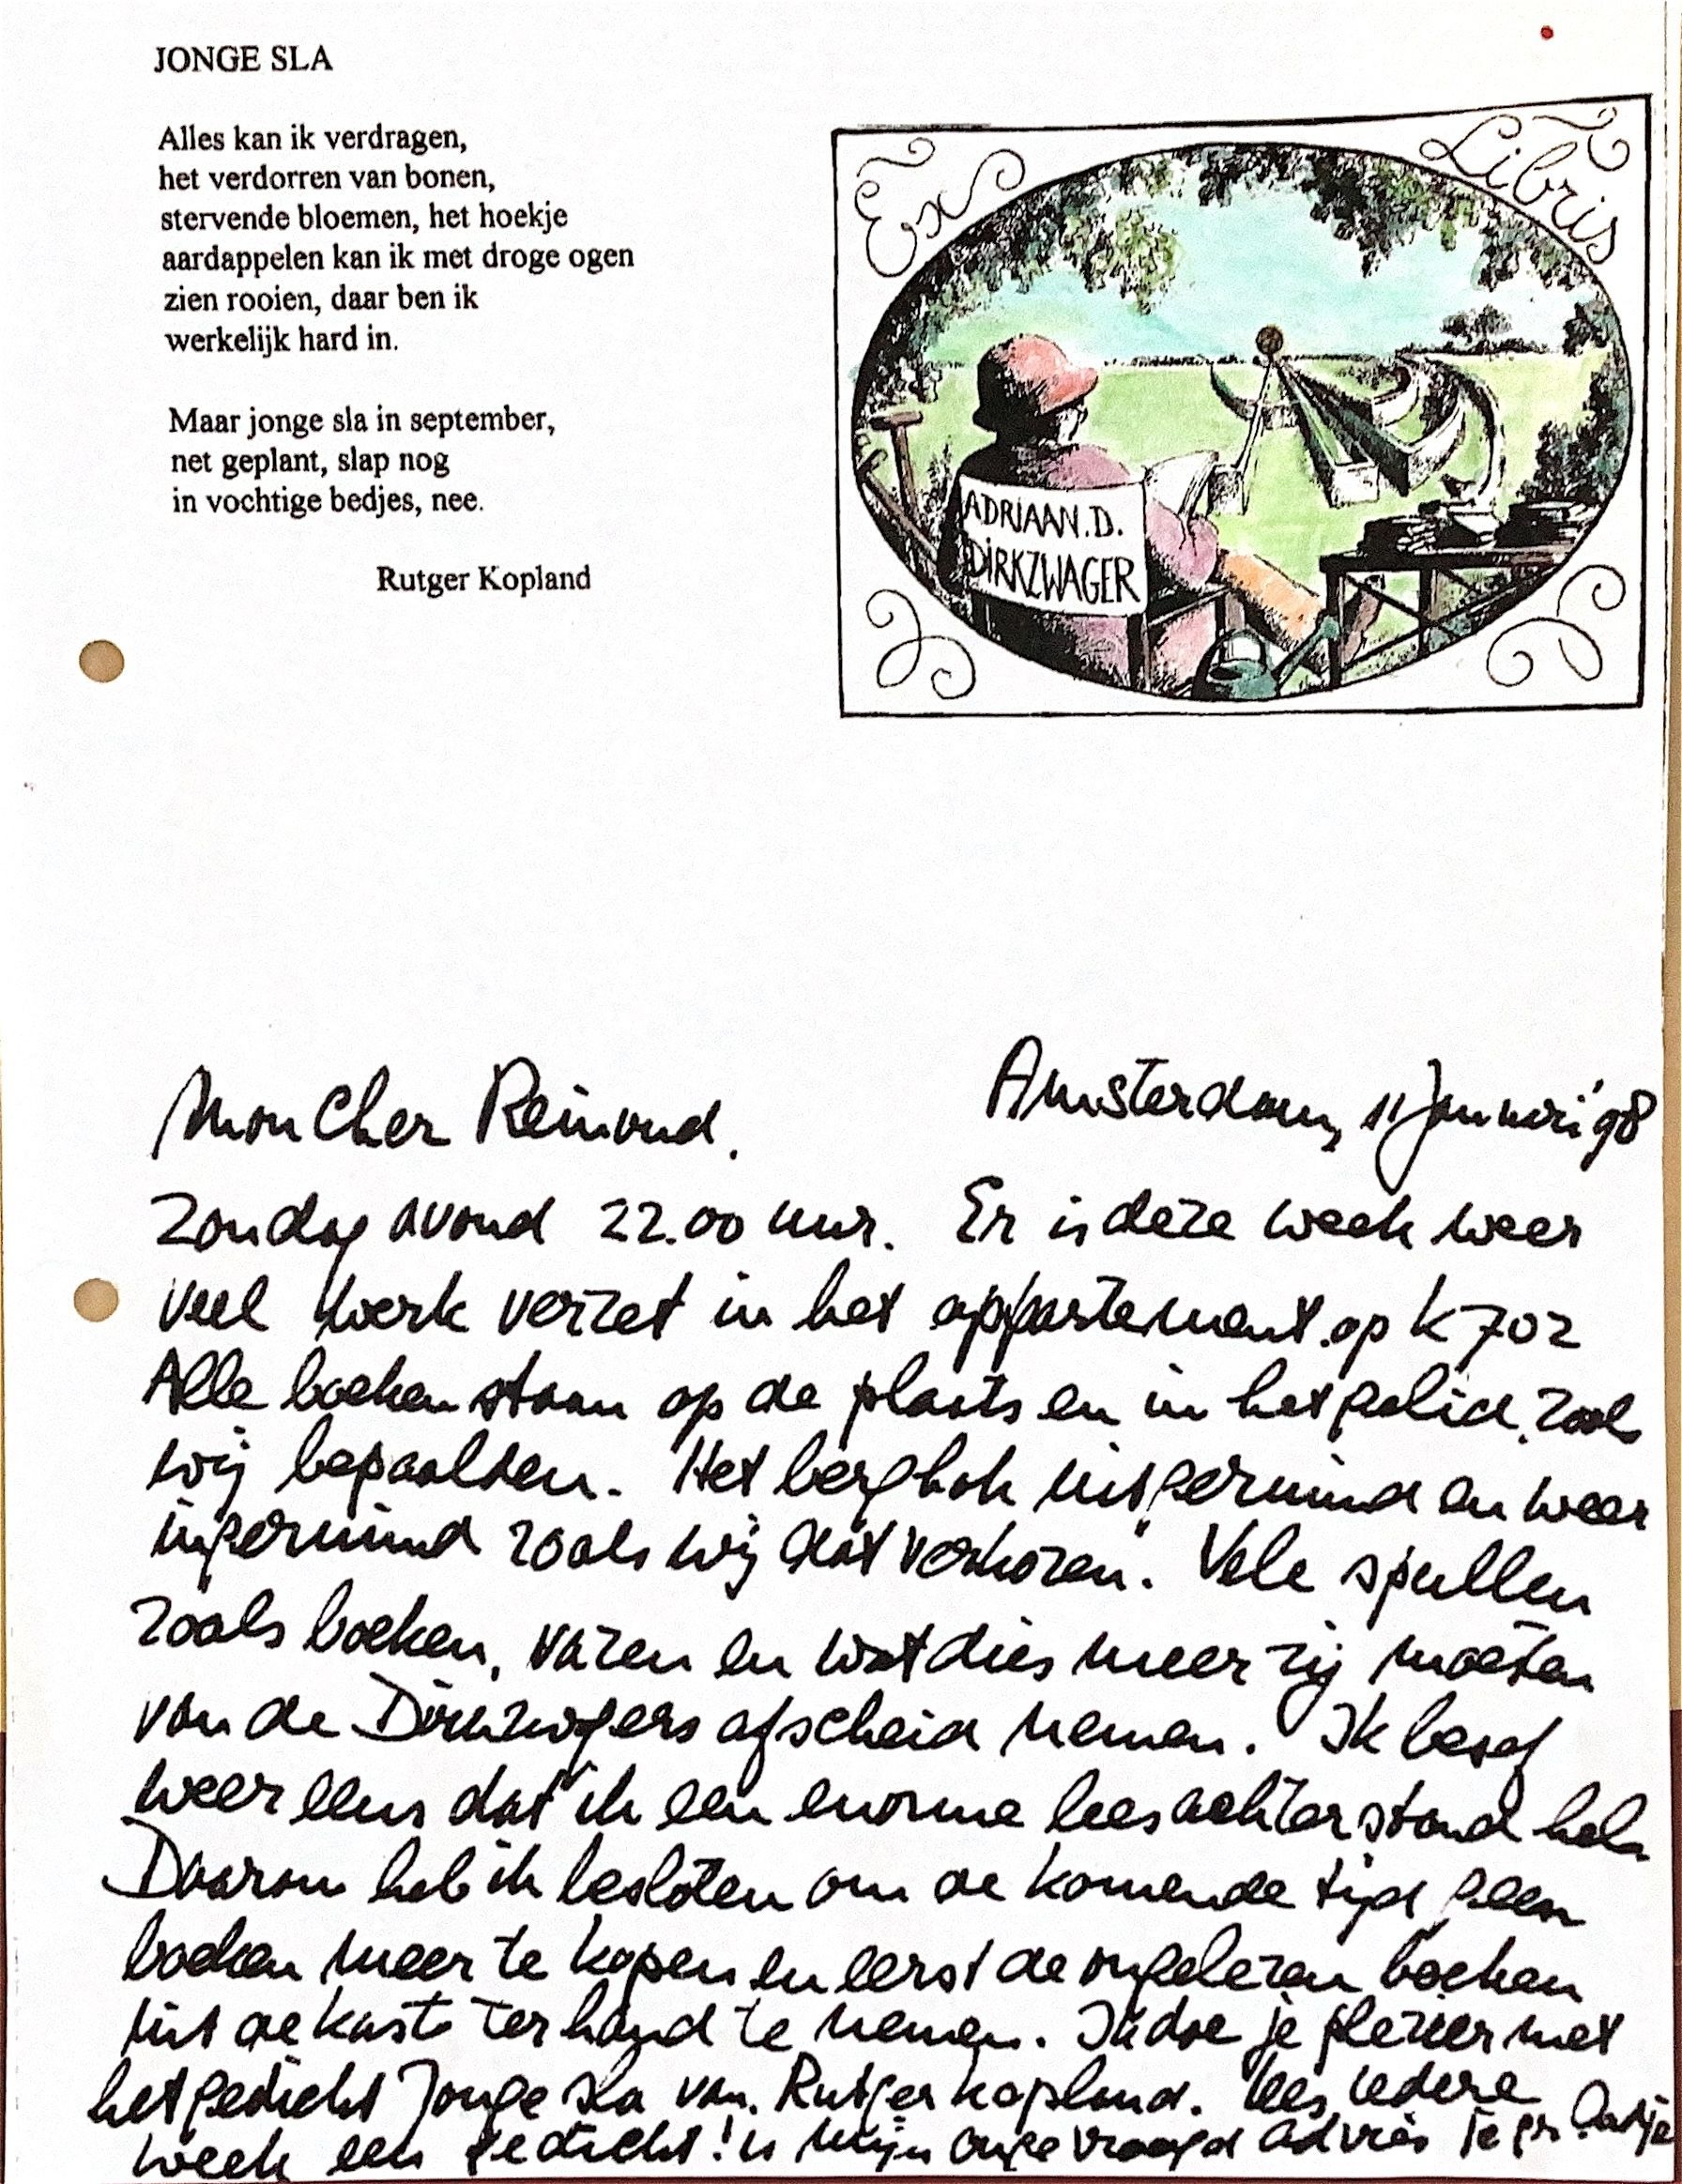 JONGE SLA
Alles kan ik verdragen,
het verdorren van bonen,
stervende bloemen, het hoekje
aardappelen kan ik met droge ogen
zien rooien, daar ben ik
werkelijk hard in.
Maar jonge sla in september,
net geplant, slap nog
in vochtige bedjes, nee.
Rutger Kopland
Ex Libris
ADRIAAN.D.
DIRKZWAGER
Mon Cher Reinoud.
Amsterdam, 11 Januari '98
Zondag avond 22.00 uur. Er is deze week weer
veel werk verzet in het appartement op K 702
Alle boeken staan op de plaats en in het gelid, zoals
wij bepaalden. Het berghok uitgeruimd en weer
ingeruimd zoals wij dat verkozen. Vele spullen
zoals boeken, vazen en wat dies meer zij moesten
van de Dirkzwagers afscheid nemen. Ik besef
weer eens dat ik een enorme leesachterstand heb
Daarom heb ik besloten om de komende tijd geen
boeken meer te kopen en eerst de ongelezen boeken
uit de kast ter hand te nemen. Ik doe je plezier met
het gedicht Jonge sla van Rutger Kopland. Lees iedere
week een gedicht! is mijn ongevraagd advies je gr. Aadje